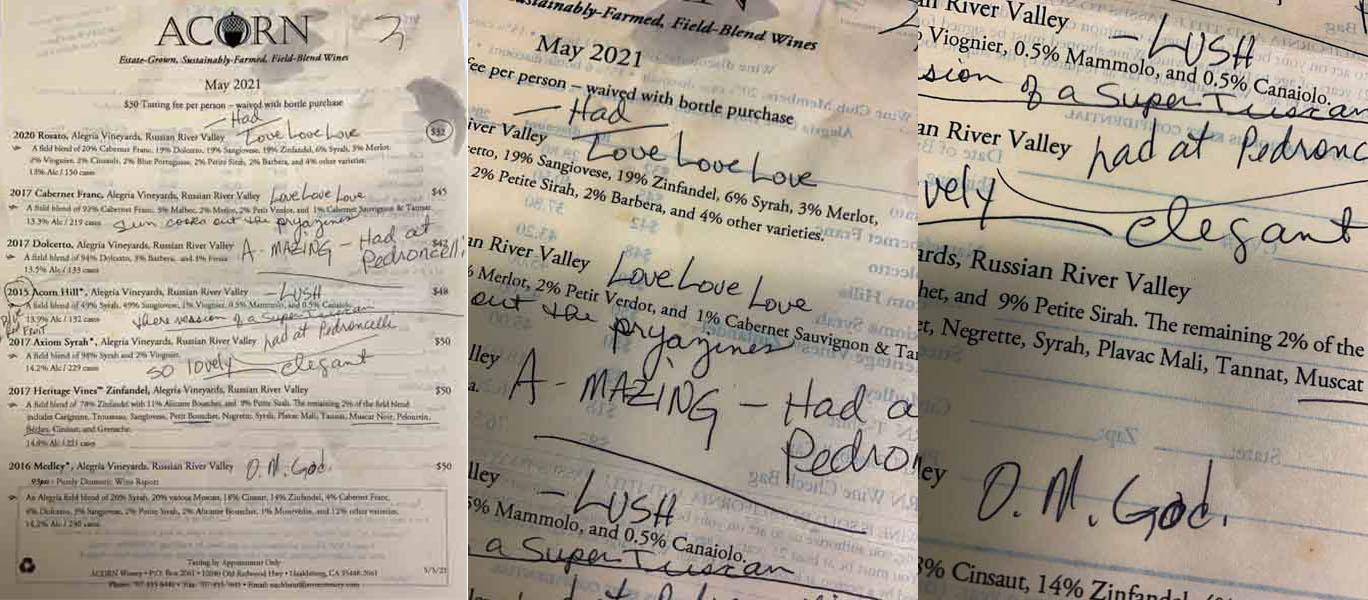 ACORN
Estate-Grown, Sustainably-Farmed, Field-Blend Wines
May 2021
$50 Tasting fee per person – waived with bottle purchase
– Had
2020 Rosato, Alegria Vineyards, Russian River Valley Love Love Love $32
A field blend of 20% Cabernet Franc, 19% Dolcetto, 19% Sangiovese, 19% Zinfandel, 6% Syrah, 3% Merlot,
2% Viognier, 2% Cinsaut, 2% Blue Portuguese, 2% Petite Sirah, 2% Barbera, and 4% other varieties.
13% Alc / 150 cases
2017 Cabernet Franc, Alegria Vineyards, Russian River Valley Love Love Love $45
A field blend of 93% Cabernet Franc, 3% Malbec, 2% Merlot, 2% Petit Verdot, and 1% Cabernet Sauvignon & Tannat
13.3% Alc / 219 cases Sun cooks out the pryazines
2017 Dolcetto, Alegria Vineyards, Russian River Valley A-MAZING – Had at
Pedroncelli
A field blend of 94% Dolcetto, 3% Barbera, and 3% Freisa
13.5% Alc / 133 cases
2015 Acorn Hill*, Alegria Vineyards, Russian River Valley – LUSH $48
A field blend of 49% Syrah, 49% Sangiovese, 1% Viognier, 0.5% Mammolo, and 0.5% Canaiolo.
13.9% Alc / 132 cases there version of a Super Tuscan
FRUIT
2017 Axiom Syrah*, Alegria Vineyards, Russian River Valley had at Pedroncelli $50
A field blend of 98% Syrah and 2% Viognier.
14.2% Alc / 229 cases so lovely elegant
2017 Heritage Vines™ Zinfandel, Alegria Vineyards, Russian River Valley $50
A field blend of 78% Zinfandel with 11% Alicante Bouschet, and 9% Petite Sirah. The remaining 2% of the field blend
includes Carignane, Trousseau, Sangiovese, Petit Bouschet, Negrette, Syrah, Plavac Mali, Tannat, Muscat Noir, Peloursin,
Béclan, Cinsaut, and Grenache.
14.8% Alc / 221 cases
2016 Medley*, Alegria Vineyards, Russian River Valley O.M.God. $50
93pts - Purely Domestic Wine Report
An Alegria field blend of 26% Syrah, 20% various Muscats, 18% Cinsaut, 14% Zinfandel, 4% Cabernet Franc,
4% Dolcetto, 3% Sangiovese, 2% Petite Sirah, 2% Alicante Bouschet, 1% Mourvèdre, and 12% other varieties.
14.2% Alc / 290 cases
Tasting by Appointment Only
ACORN Winery • P.O. Box 2061 • 12040 Old Redwood Hwy • Healdsburg, CA 95448-2061
5/5/21
Sustainably-Farmed, Field-Blend Wines
May 2021
fee per person – waived with bottle purchase
– Had
iver Valley Love Love Love
cetto, 19% Sangiovese, 19% Zinfandel, 6% Syrah, 3% Merlot,
2% Petite Sirah, 2% Barbera, and 4% other varieties.
an River Valley Love Love Love
% Merlot, 2% Petit Verdot, and 1% Cabernet Sauvignon & Ta
out the pryazines
lley A-MAZING – Had a
Pedro
lley – LUSH
5% Mammolo, and 0.5% Canaiolo.
a Super Tuscan
n River Valley – LUSH
Viognier, 0.5% Mammolo, and 0.5% Canaiolo.
sion of a Super Tuscan
an River Valley had at Pedronc
vely elegant
ards, Russian River Valley
het, and 9% Petite Sirah. The remaining 2% of the
et, Negrette, Syrah, Plavac Mali, Tannat, Muscat
ey O.M.God.
8% Cinsaut, 14% Zinfandel